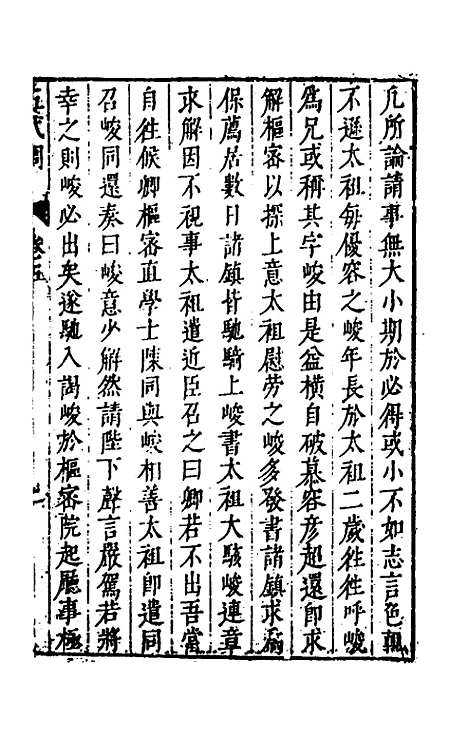 凢所論請事無大小期於必得或小不如志言色輒
不遜太祖毎優容之峻年長於太祖二歲徃徃呼峻
爲兄或稱其字峻由是益横自破慕容彦超還即求
解樞宻以探上意太祖慰劳之峻多發書諸鎮求爲
保薦居數日諸鎮皆馳騎上峻書太祖大駭峻連章
求解因不視事太祖遣近臣召之曰卿若不出吾當
自徃候卿樞宻直學士陳同與峻相善太祖即遣同
召峻同還奏曰峻意少解然請陛下聲言嚴駕若將
幸之則峻必出矣遂馳入謁峻於樞宻院起廳事極
五代 卷五